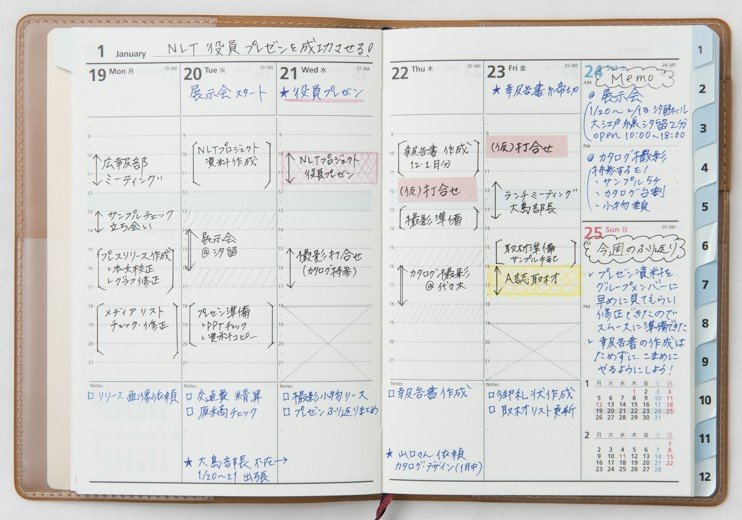 1 January NLT 役員プレゼンを成功させる!
19 Mon 月
広報部
ミーティング
サンプルチェック
立ち会い
プレスリリース作成
・本文校正
・グラフ修正
メディアリスト
チェック・修正
Notes
□ リリース画像依頼
20 Tue 火
展示会スタート
NLTプロジェクト
資料作成
展示会
@汐留
プレゼン準備
・PPTチェック
・資料コピー
Notes
□ 交通費 精算
□ 原稿チェック
★ 大島部長 不在→
1/20~21 出張
21 Wed 水
★役員プレゼン
NLTプロジェクト
役員プレゼン
撮影打合せ
(カタログ持参)
Notes
□ 撮影小物リース
□ プレゼンふり返りまとめ
22 Thu 木
報告書 作成
12.1月分
(仮)打合せ
撮影準備
カタログ撮影
@代々木
Notes
□ 報告書 作成
★ 山口さん 依頼
カタログデザイン(1月中)
23 Fri 金
★ 報告書〆切
(仮)打合せ
ランチミーティング
大島部長
取材準備
サンプル手配
A誌取材
Notes
□ 御礼状作成
□ 取材リスト更新
24 Memo
@ 展示会
1/20~2/13 汐留ホール
大江戸線汐留2分
open 10:00~18:00
@ カタログ撮影
持参するモノ
・サンプル5ケ
・カタログ台割
・小物類
25 Sun 日
今週のふり返り
プレゼン資料を
グループメンバーに
早めに見てもらい
修正できたので
スムーズに準備できた
報告書の作成は
ためずに、こまめに
やるようにしよう!
1 月 火 水 木 金 土 日
1 2 3 4
5 6 7 8 9 10 11
12 13 14 15 16 17 18
19 20 21 22 23 24 25
26 27 28 29 30 31
2 月 火 水 木 金 土 日
1
2 3 4 5 6 7 8
9 10 11 12 13 14 15
16 17 18 19 20 21 22
23 24 25 26 27 28
1
2
3
4
5
6
7
8
9
10
11
12